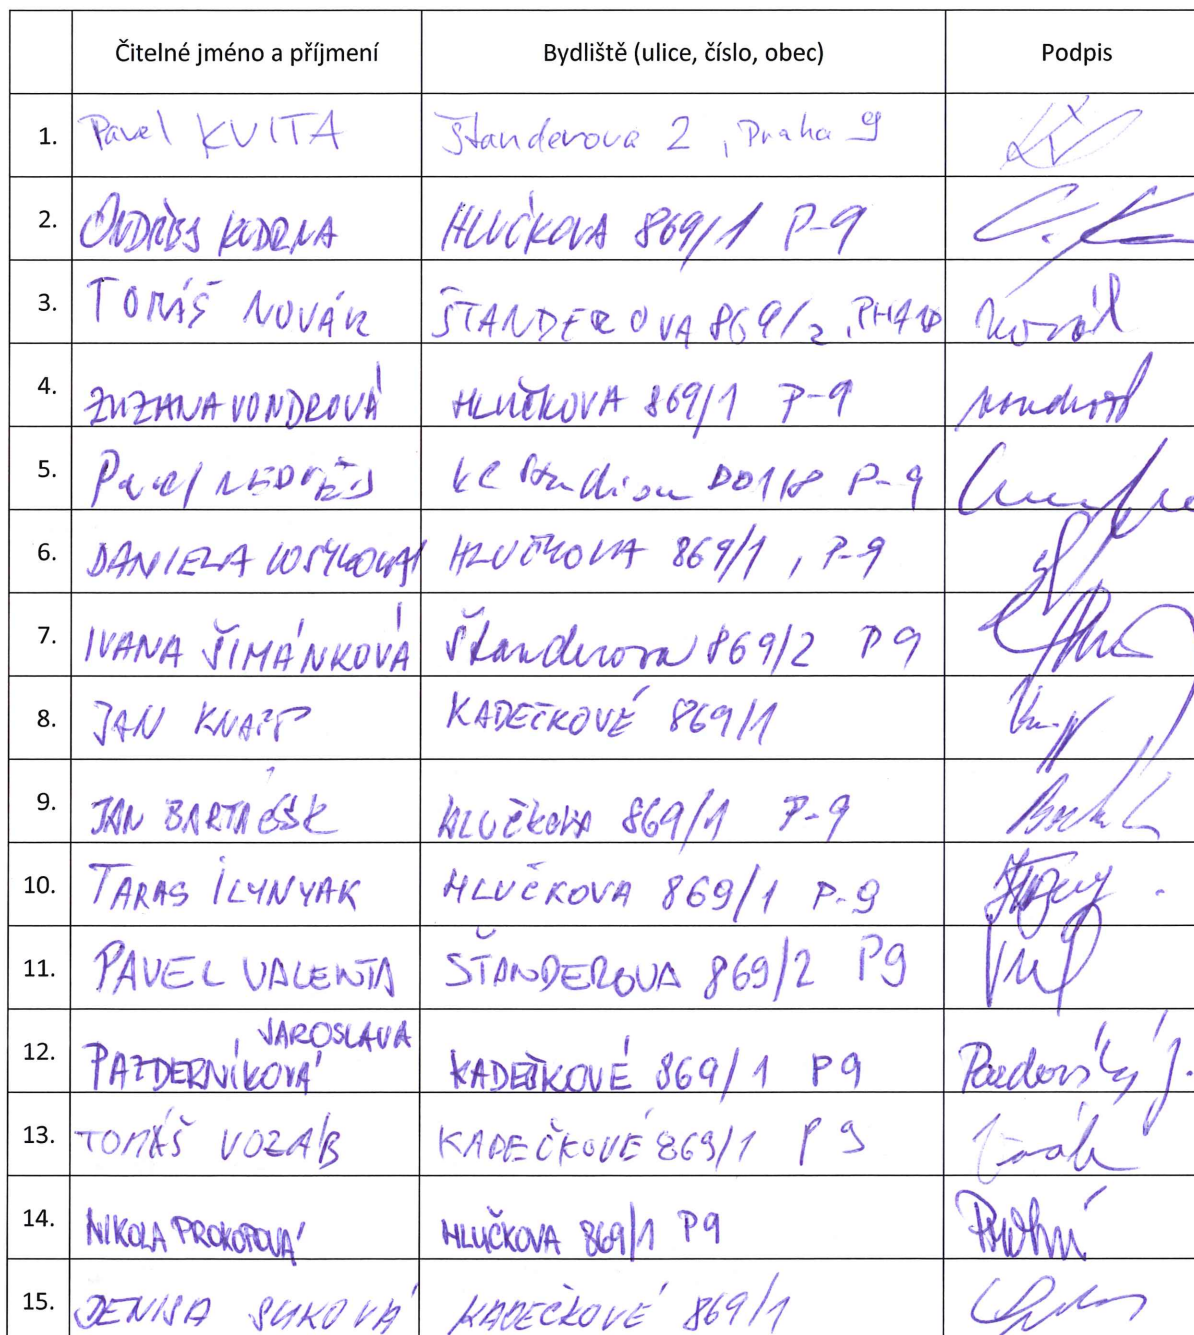 Čitelné jméno a příjmení Bydliště (ulice, číslo, obec) Podpis
1. Pavel KVITA Štanderova 2, Praha 9
2. ONDŘEJ KUDRNA HLUČKOVA 869/1 P-9
3. TOMÁŠ NOVÁK ŠTANDEROVA 869/2, PHA Novák
4. ZUZANA VONDROVÁ HLUČKOVA 869/1 P-9
5. Pavel Ke Stadionu P-9
6. DANIELA HLUČKOVA 869/1, P-9
7. IVANA ŠIMÁNKOVÁ Štanderova 869/2 P9
8. JAN KNAPP KADEČKOVÉ 869/1
9. JAN BARTÁČEK HLUČKOVA 869/1 P-9
10. TARAS ILYNYAK HLUČKOVA 869/1 P-9
11. PAVEL VALENTA ŠTANDEROVA 869/2 P9
12. JAROSLAVA
PAZDERNÍKOVÁ KADEČKOVÉ 869/1 P9
13. TOMÁŠ VOZÁB KADEČKOVÉ 869/1 P9
14. NIKOLA PROKOPOVÁ HLUČKOVA 869/1 P9
15. DENISA KADEČKOVÉ 869/1